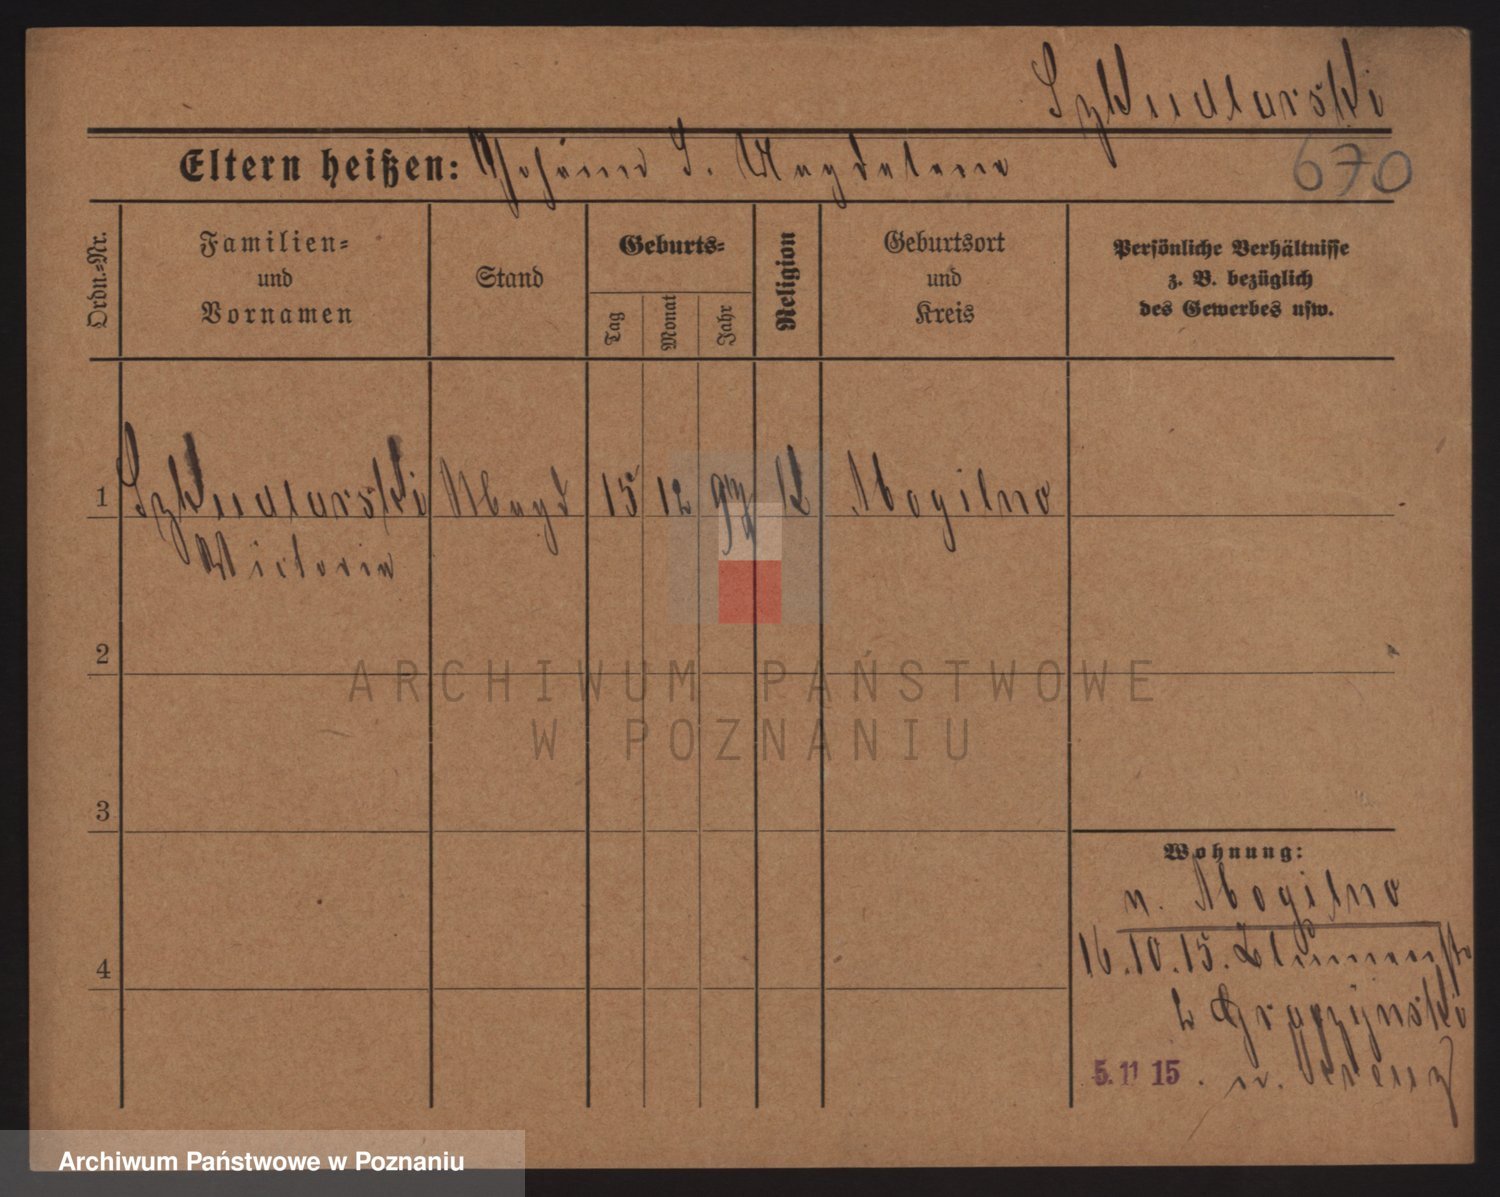 Szkudlarski
Eltern heißen: Johann u. Magdalena
670
Ordn.=Nr.
Familien=
und
Vornamen
Stand
Geburts=
Tag
Monat
Jahr
Religion
Geburtsort
und
Kreis
Persönliche Verhältnisse
z. B. bezüglich
des Gewerbes usw.
1 Szkudlarski Magd 15 12 97 K Mogilno
Victoria
2
3
4
Wohnung:
n. Mogilno
16.10.15. Blumenstr
2 Gryczynski
5. 11 15. n. Kreuz
ARCHIWUM PAŃSTWOWE
W POZNANIU
Archiwum Państwowe w Poznaniu